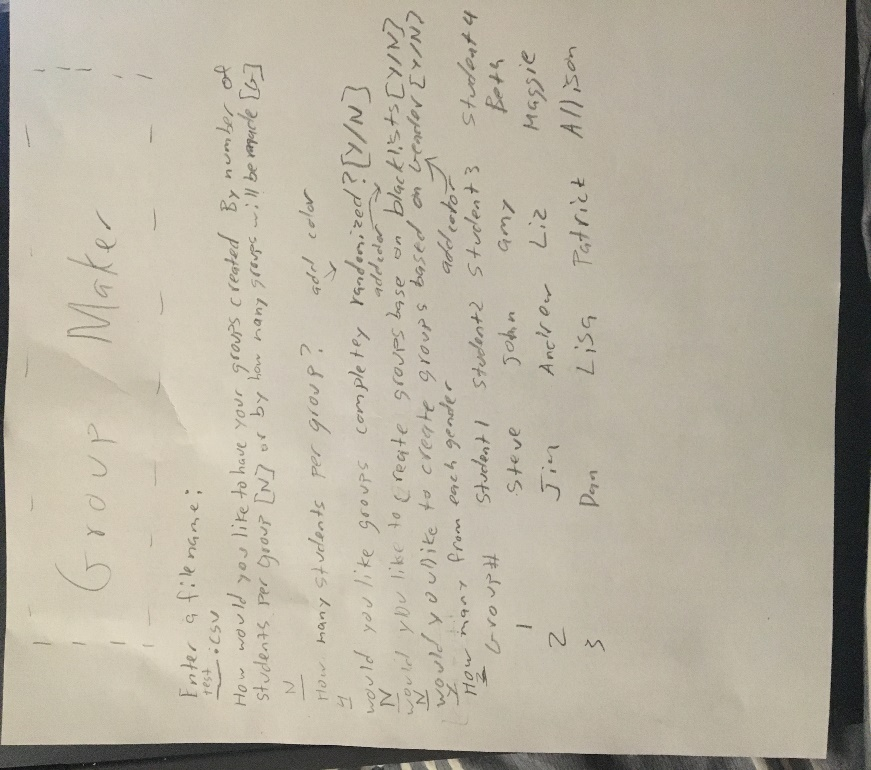 Group Maker
Enter a filename:
test.csv
How would you like to have your groups created By number of
students per Group [N] or by how many groups will be made [G]
N
How many students per group? add color
4
would you like groups completey randomized? [Y/N]
N add color
would you like to create groups base on blacklists [Y/N]
N
would you like to create groups based on Gender [Y/N]
Y add color
How many from each gender
2
Group# Student1 Student2 Student3 Student4
1 Steve John amy Beth
2 Jim Andrew Liz Maggie
3 Dan Lisa Patrick Allison